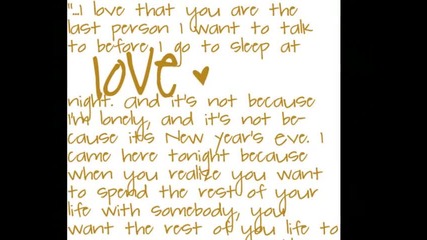 "...I love that you are the
last person I want to talk
to before I go to sleep at
love
night. and it's not because
I'm lonely, and it's not be-
cause it's New Year's Eve. I
came here tonight because
when you realize you want
to spend the rest of your
life with somebody, you
want the rest of you life to